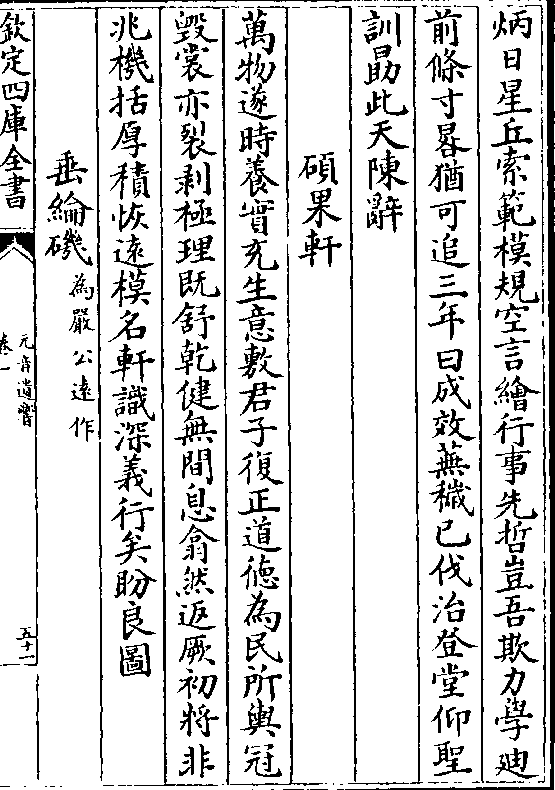 炳日星丘索範模規空言繪行事先哲豈吾欺力學廸
前條寸晷猶可追三年曰成效蕪穢已伐治登堂仰聖
訓勗此天陳辭
碩果軒
萬物遂時養實充生意敷君子復正道德為民所輿冠
毀裳亦裂剥極理既舒乾健無間息翕然返厥初將非
兆機括厚積恢遠模名軒識深義行矣盼良圖
垂綸磯為嚴公遠作
欽定四庫全書
元音遺響
卷一
五十一